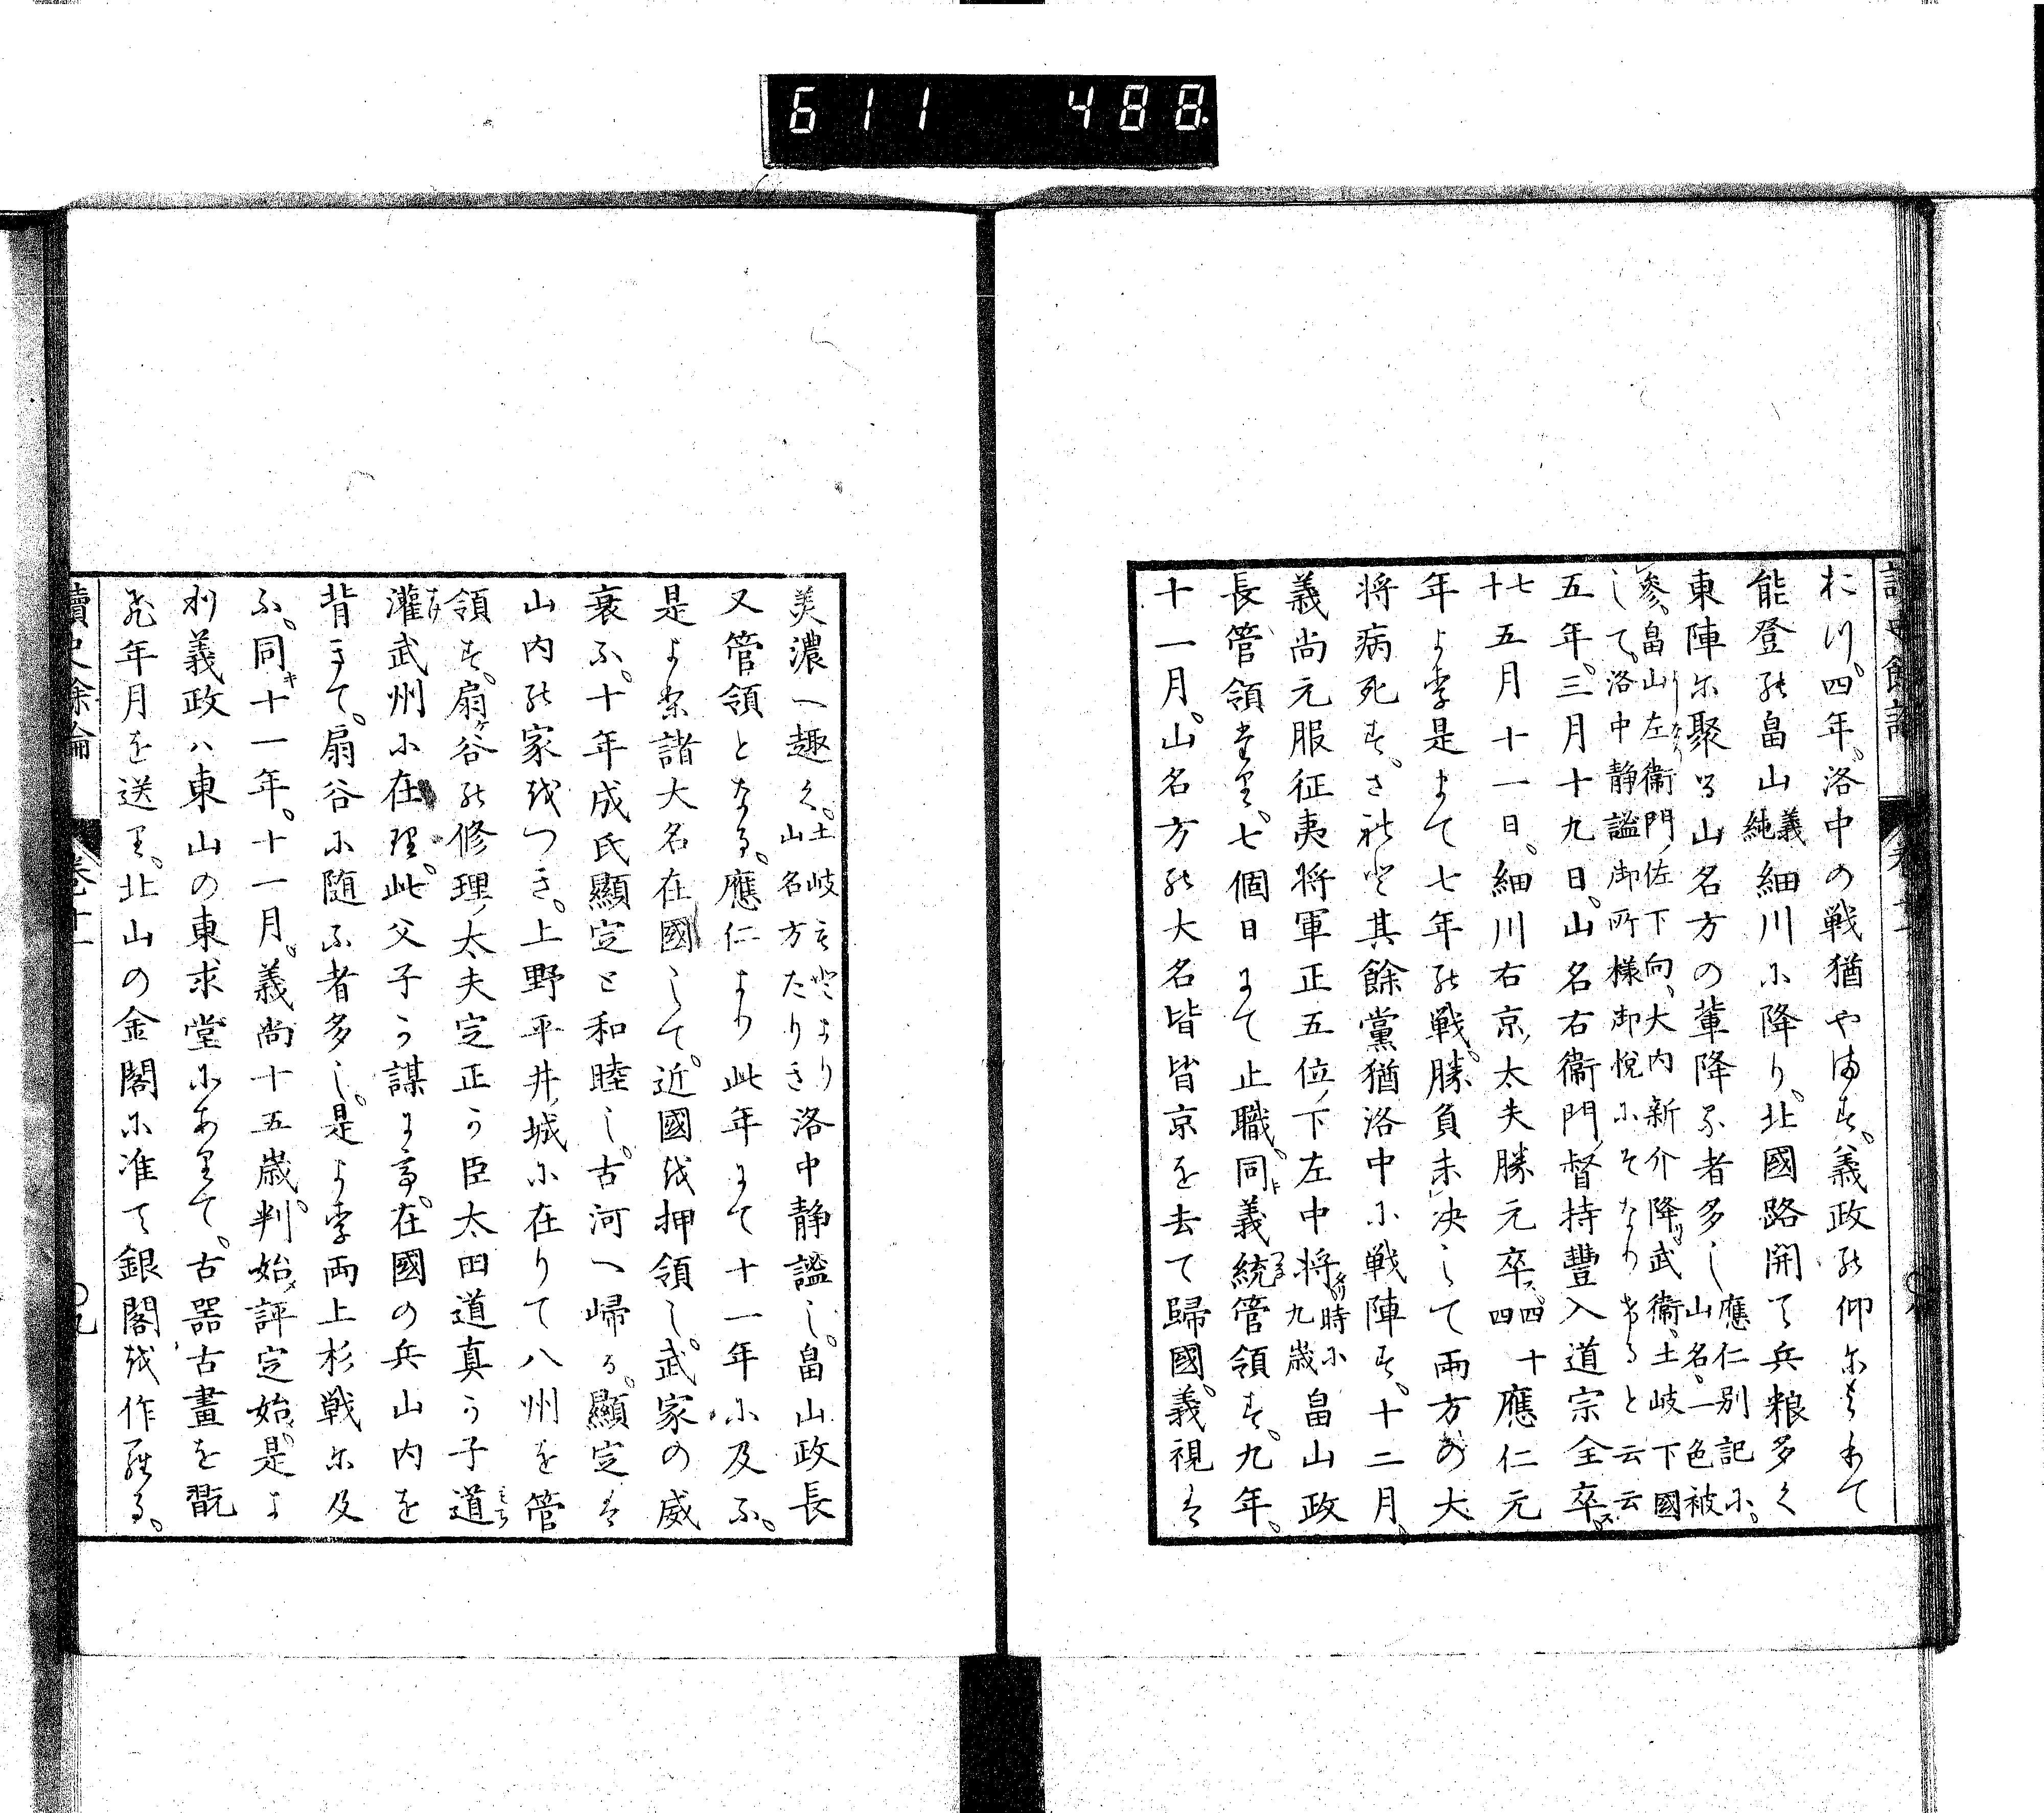 611 488
讀史餘論
おハ。四年。洛中の戦猶やまず。義政の仰にもよりて
能登の畠山義純細川に降り。北國路開て兵粮多く
東陣に聚る山名方の輩降る者多し應仁別記に。山名。一色被
參。畠山左衞門佐下向。大内新介降。武衞。土岐下國して。洛中静謐御所様御悦にそなりけると云云
五年。三月十九日。山名右衞門督持豐入道宗全卒。
七十五月十一日。細川右京太夫勝元卒。四十四應仁元
年より是まて七年の戦。勝負未決して兩方の大
将病死す。されど其餘黨猶洛中に戦陣す。十二月。
義尚元服征夷将軍正五位下左中将時に九歳畠山政
長管領たり。七個日にて止職。同義統管領す。九年。
十一月。山名方の大名皆皆京を去て歸國。義視は
美濃へ趣く。土岐もとより山名方たりき洛中静謐し。畠山政長
又管領となる。應仁より此年にて十一年に及ふ。
是より諸大名在國して。近國を押領し。武家の威
衰ふ。十年成氏顯定と和睦し。古河へ帰る。顯定は
山内の家をつき。上野平井城に在りて八州を管
領す。扇ヶ谷の修理太夫定正か臣太田道真か子道
灌武州に在り。此父子か謀にて。在國の兵山内を
背きて。扇谷に随ふ者多し。是より両上杉戦に及
ふ。同十一年。十一月。義尚十五歳。判始評定始。是よ
り義政ハ東山の東求堂にありて。古器古畫を翫
ひ年月を送り。北山の金閣に准て銀閣を作らる。
讀史餘論 卷十一 〇九